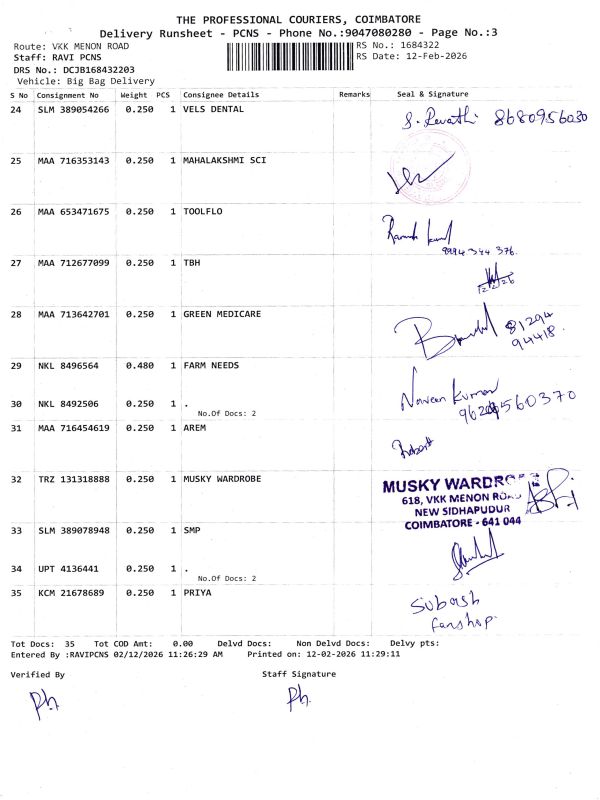 THE PROFESSIONAL COURIERS, COIMBATORE
Delivery Runsheet - PCNS - Phone No.:9047080280 - Page No.:3
Route: VKK MENON ROAD RS No.: 1684322
Staff: RAVI PCNS RS Date: 12-Feb-2026
DRS No.: DCJB168432203
Vehicle: Big Bag Delivery
S No Consignment No Weight PCS Consignee Details Remarks Seal & Signature
24 SLM 389054266 0.250 1 VELS DENTAL S. Revathi 8680956030
25 MAA 716353143 0.250 1 MAHALAKSHMI SCI
26 MAA 653471675 0.250 1 TOOLFLO
9994 344 376.
27 MAA 712677099 0.250 1 TBH
12.2.26
28 MAA 713642701 0.250 1 GREEN MEDICARE 81294
94418.
29 NKL 8496564 0.480 1 FARM NEEDS
Naveen Kumar
30 NKL 8492506 0.250 1 .
No.Of Docs: 2
560370
31 MAA 716454619 0.250 1 AREM
Robert
32 TRZ 131318888 0.250 1 MUSKY WARDROBE
MUSKY WARDROBE
618, VKK MENON ROAD
NEW SIDHAPUDUR
COIMBATORE - 641 044
33 SLM 389078948 0.250 1 SMP
34 UPT 4136441 0.250 1 .
No.Of Docs: 2
35 KCM 21678689 0.250 1 PRIYA
Subash
fanshop.
Tot Docs: 35 Tot COD Amt: 0.00 Delvd Docs: Non Delvd Docs: Delvy pts:
Entered By :RAVIPCNS 02/12/2026 11:26:29 AM Printed on: 12-02-2026 11:29:11
Verified By Staff Signature
Ph Ph.